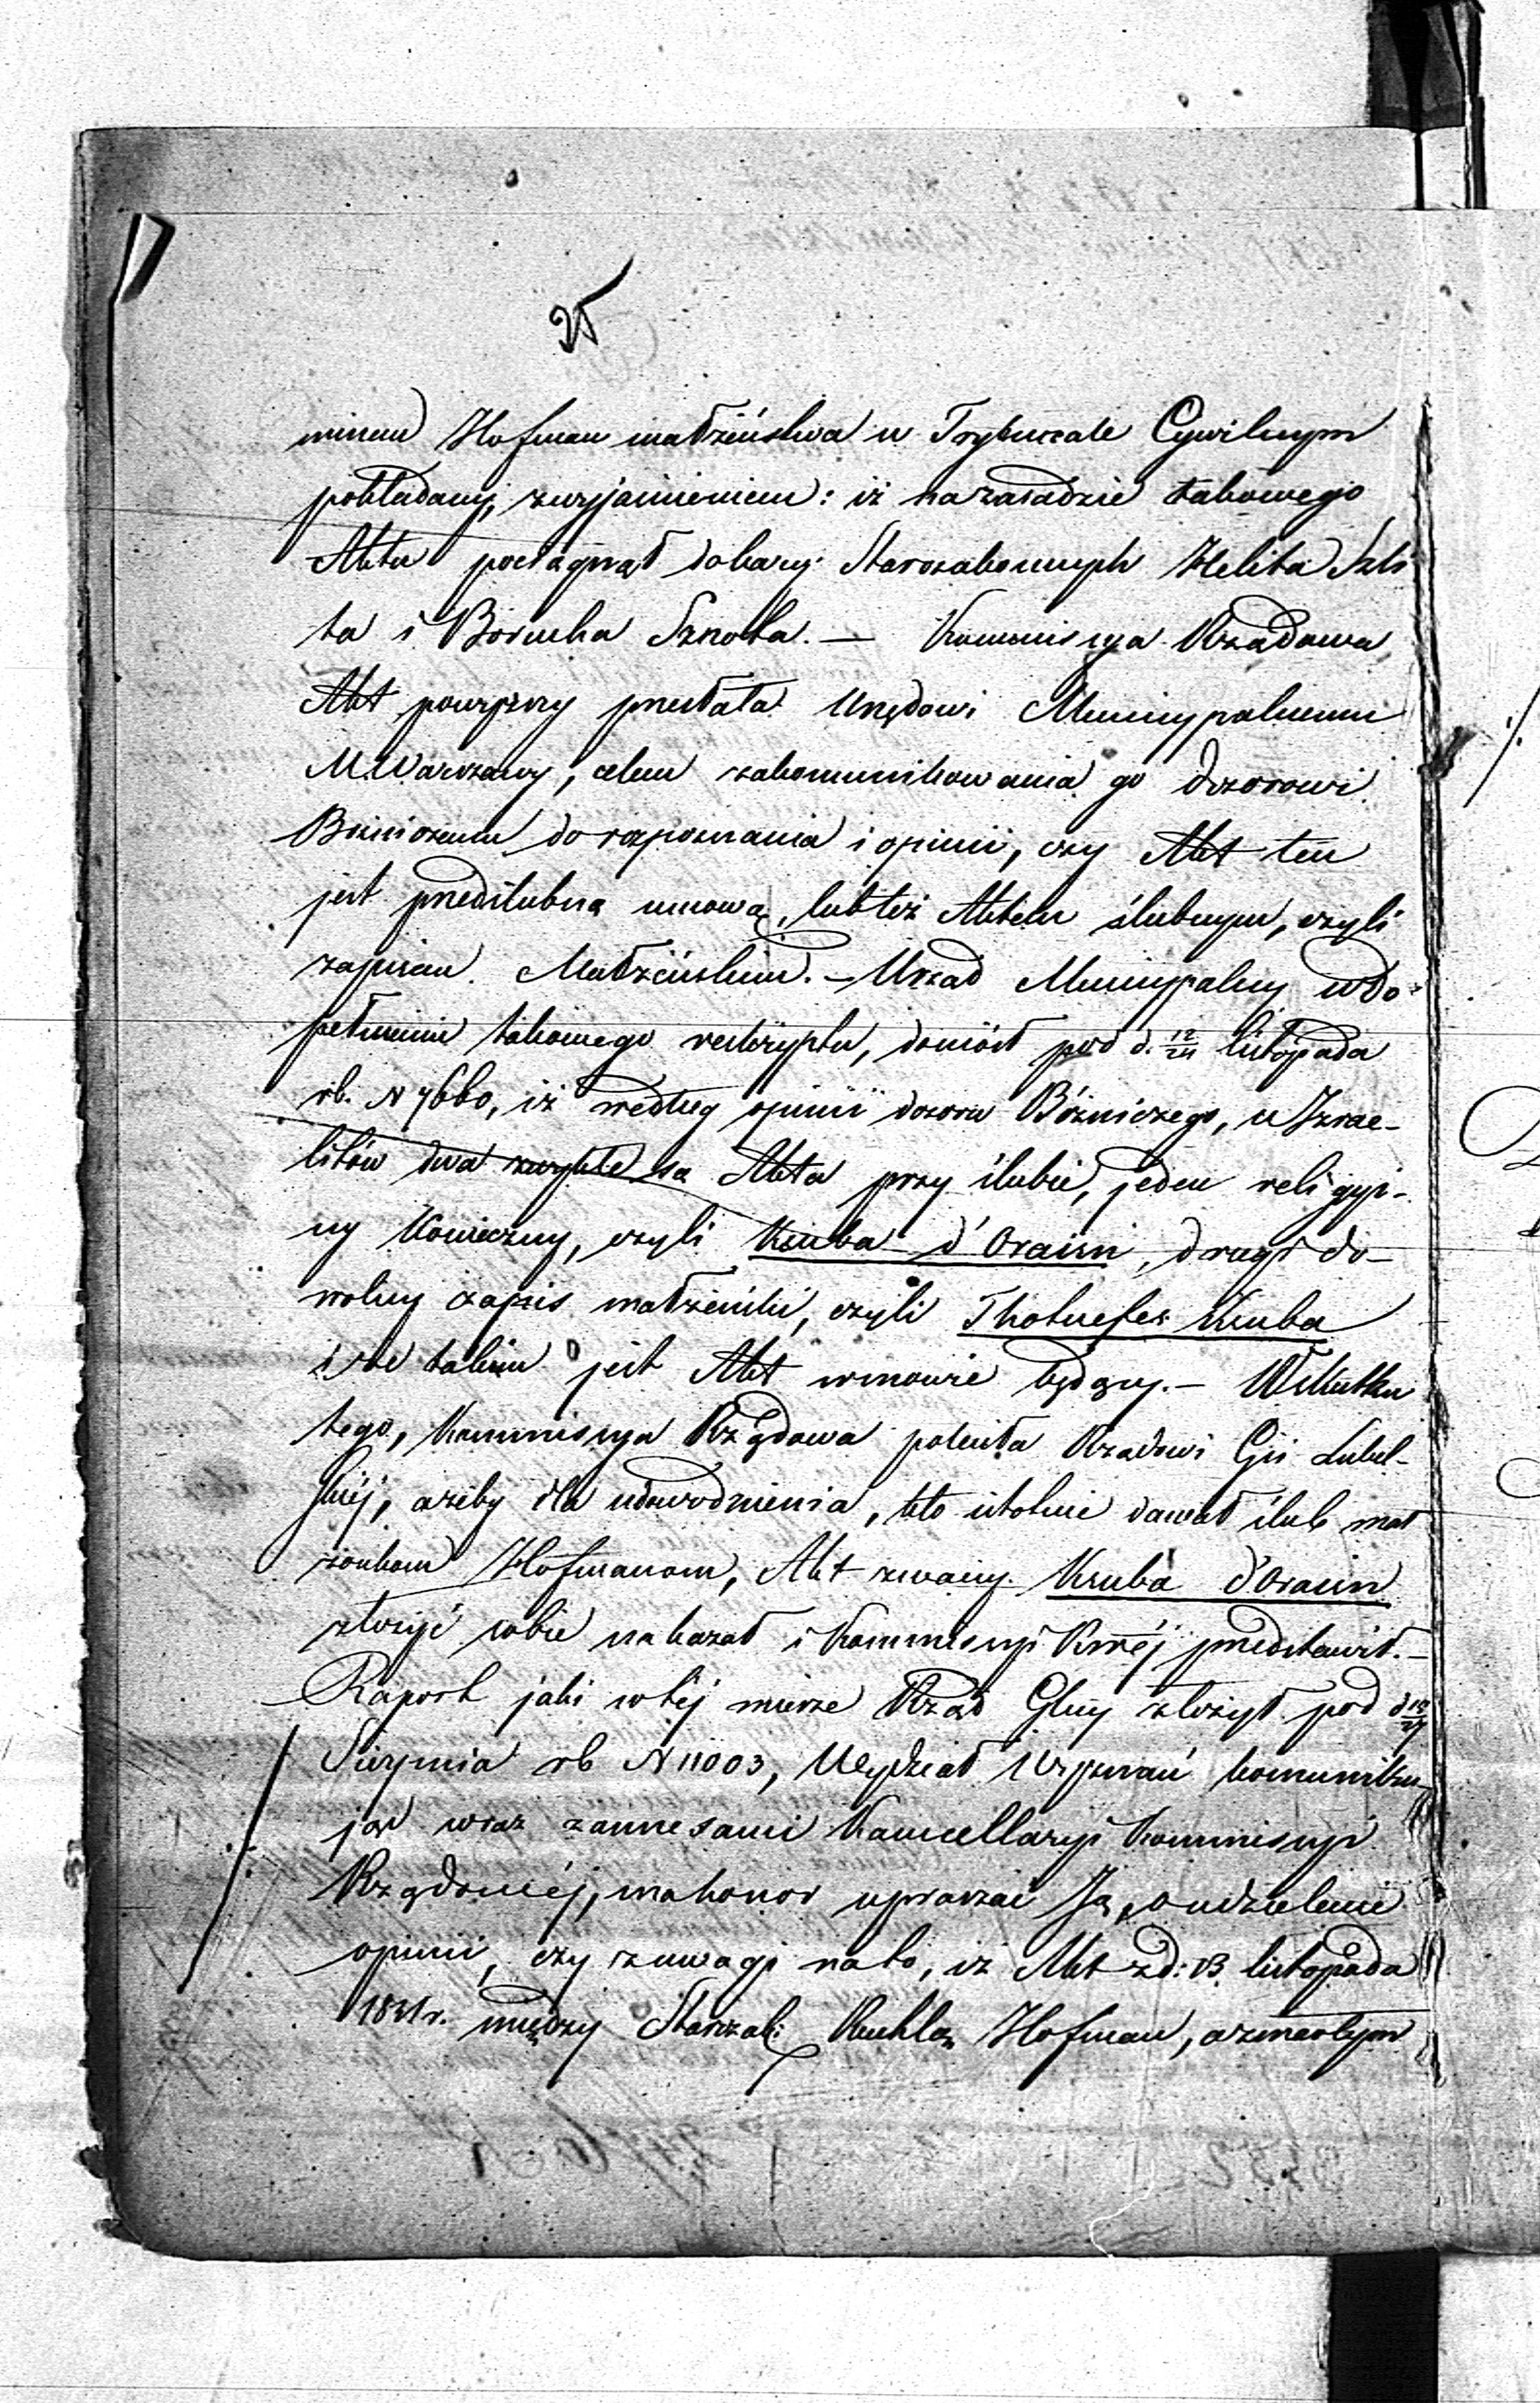 25
minem Hofman małżeństwa w Trybunale Cywilnym
pokładany, z wyjaśnieniem: iż na zasadzie takowego
Aktu pociągnął do kary Starozakonnych Helika Szli
ta i Borucha Sznola. — Kommissya Rządowa
Akt powyższy przesłała Urzędowi Municypalnemu
M. Warszawy, celem zakomunikowania go dozorowi
Bóżniczemu do rozpoznania i opinii, czy Akt ten
jest przedślubną umową, lub też Aktem ślubnym, czyli
zapisem Małżeńskim. — Urząd Municypalny w do-
pełnieniu takowego reskryptu, doniósł pod d. 12/24 listopada
rb. N 7660, iż według opinii dozoru Bóżniczego, u Izrae-
litów dwa zwykłe są Akta przy ślubie, jeden religyi-
ny konieczny, czyli Ksuba d'Oraim, drugi do-
wolny zapis małżeński, czyli Thosuefes Ksuba
i że takim jest Akt w mowie będący. — W skutku
tego, Kommissya Rządowa poleciła Rządowi Gii Lubel-
skiej, ażeby dla udowodnienia, kto istotnie dawał ślub mał
żonkom Hofmanom, Akt zwany Ksuba d'Oraim
złożyć sobie nakazał i Kommissyi Rwéj przedstawił. —
Raport jaki w téj mierze Rząd Glny złożył pod d 15/27
Sierpnia rb N 11003, Wydział Wyznań komuniku-
jąc wraz z annexami Kancellaryi Kommissyi
Rządowéj, ma honor upraszać Ją, o udzielenie
opinii, czy z uwagi na to, iż Akt z d: 13 listopada
1841 r. między Starozak: Ruchlą Hofman, a zmarłym